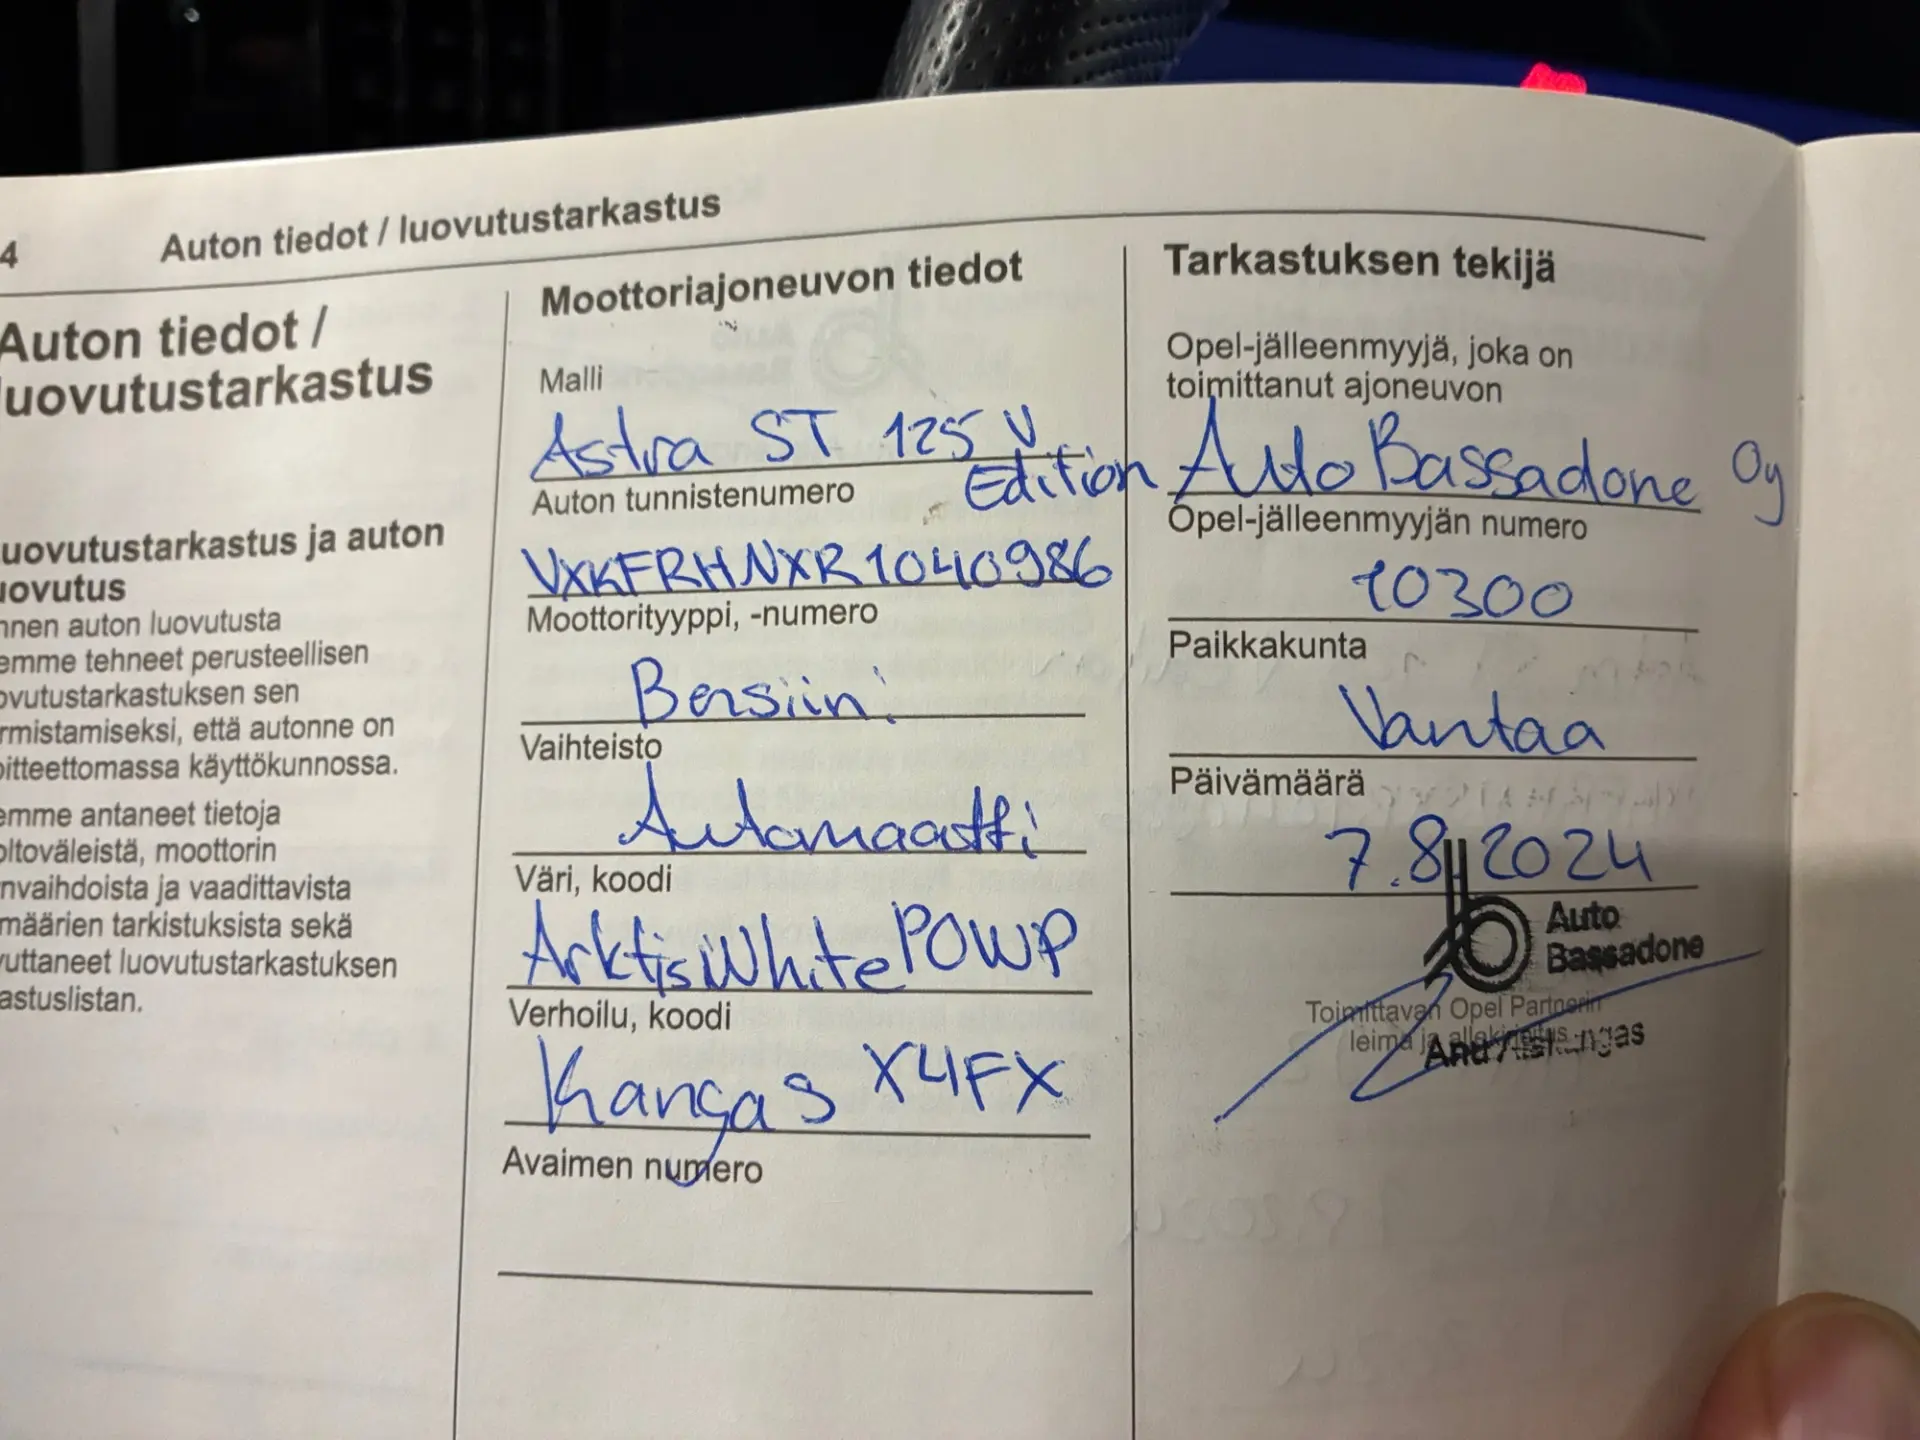 4 Auton tiedot / luovutustarkastus
Auton tiedot /
luovutustarkastus
uovutustarkastus ja auton
uovutus
nnen auton luovutusta
emme tehneet perusteellisen
ovutustarkastuksen sen
rmistamiseksi, että autonne on
oitteettomassa käyttökunnossa.
emme antaneet tietoja
oltoväleistä, moottorin
nvaihdoista ja vaadittavista
määrien tarkistuksista sekä
vuttaneet luovutustarkastuksen
astuslistan.
Moottoriajoneuvon tiedot
Malli
Astra ST 125 V
Edition
Auton tunnistenumero
VXKFRHNXR1040986
Moottorityyppi, -numero
Bensiini
Vaihteisto
Automaatti
Väri, koodi
ArktisWhite POWP
Verhoilu, koodi
Kangas X4FX
Avaimen numero
Tarkastuksen tekijä
Opel-jälleenmyyjä, joka on
toimittanut ajoneuvon
Auto Bassadone Oy
Opel-jälleenmyyjän numero
10300
Paikkakunta
Vantaa
Päivämäärä
7.8.2024
Auto
Bassadone
Toimittavan Opel Partnerin
leima ja allekirjoitus